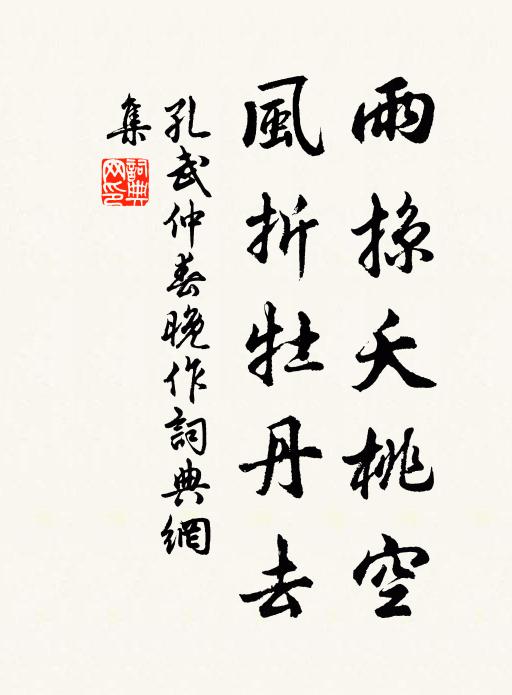 雨掠夭桃空
風折牡丹去
孔武仲春晚作詞典網
集
詞典網印